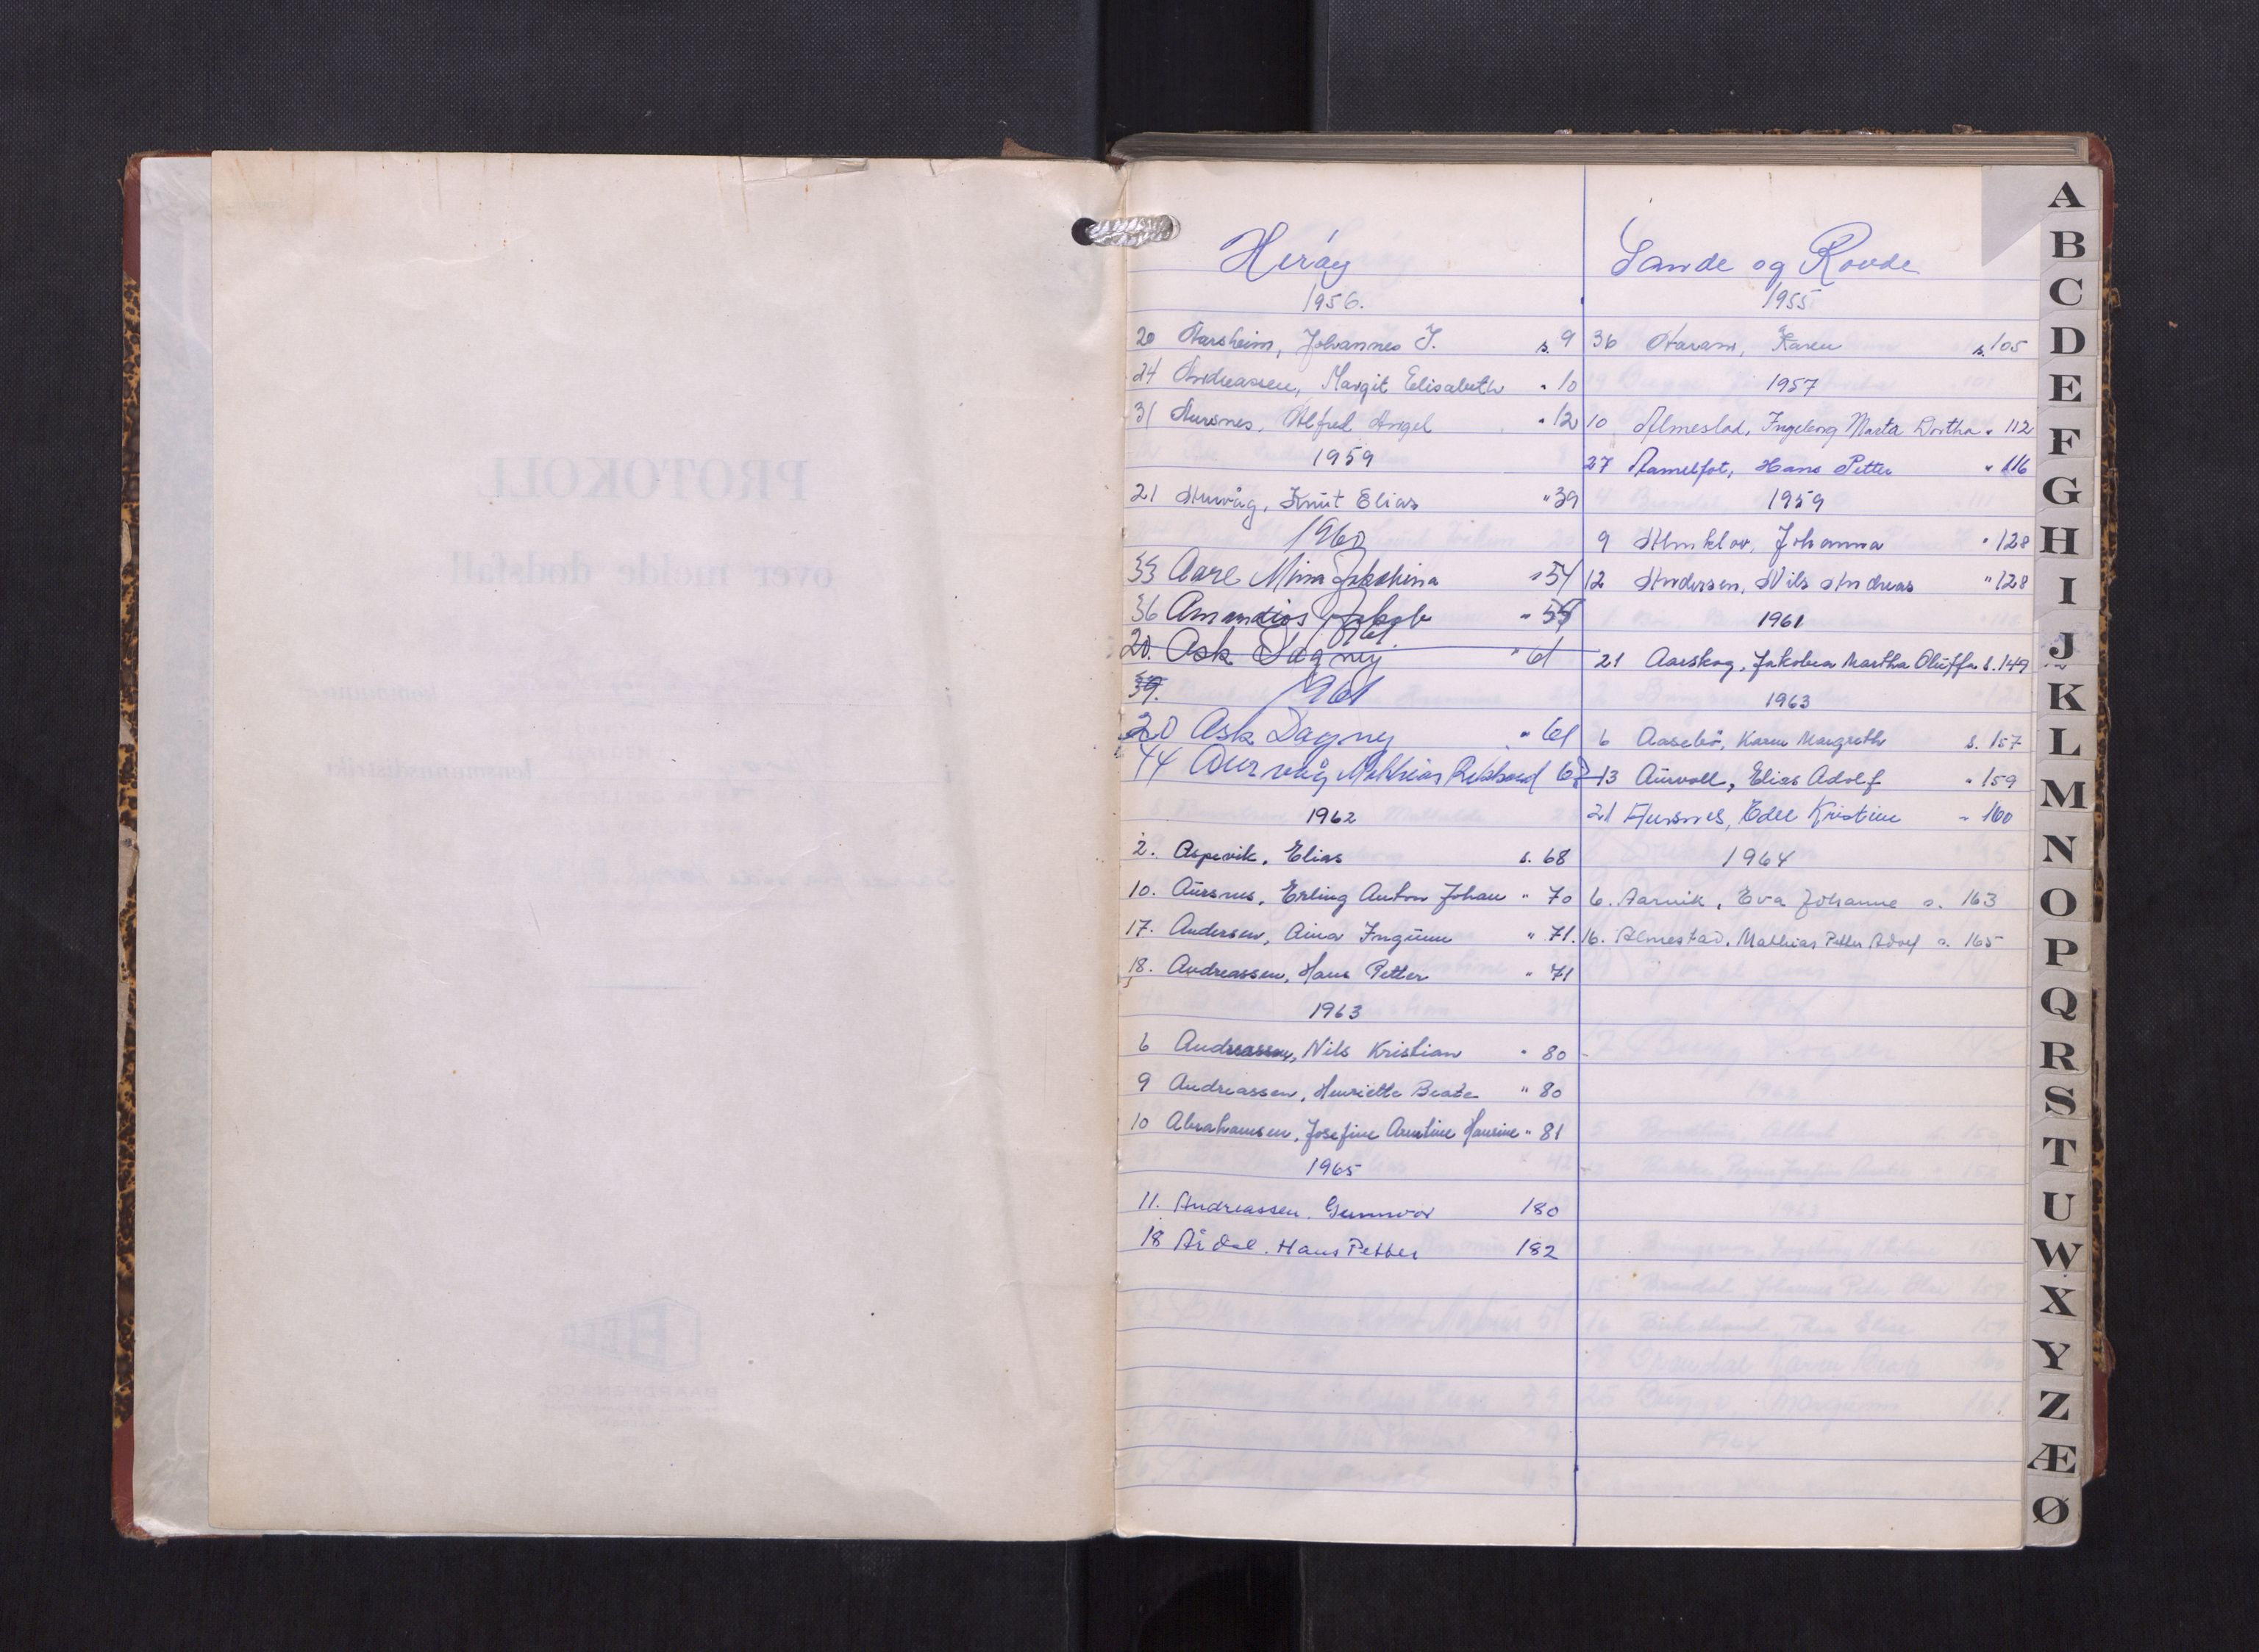 Herøy
1956.
20 Aarsheim, Johannes J. s. 9
24 Andreassen, Margit Elisabeth " 10
31 Aursnes, Alfred Angel " 12
1959
21 Aurvåg, Knut Elias " 39
1960
33 Aare Mina Jakobina " 54
36 Amandios Jakob " 55
1961.
20. Ask Dagny " 61
39. 1961
20 Ask Dagny " 61
44 Aurvåg Mathias Rikhard
1962
2. Aspevik, Elias s. 68
10. Aursnes, Erling Anton Johan " 70
17. Andersen, Aina Ingunn " 71.
18. Andreassen, Hans Petter " 71
1963
6 Andreassen, Nils Kristian " 80
9 Andreassen, Henriette Beate " 80
10 Abrahamsen, Josefine Hansine " 81
1965
11. Andreassen. Gunnvor 180
18 Årdal. Hans Petter 182
Sande og Rovde
1955
36 Aaram, Karen s. 105
1957
10 Almestad, Ingeborg Marta Dortha " 112
27 Aamelfot, Hans Petter " 116
1959
9 Almklov, Johanna " 128
12 Andersen, Nils Andreas " 128
1961
21 Aarskog, Jakobea Martha Oluffa s. 149
1963
6 Aasebø, Karen Margreth s. 157
13 Aurvoll, Elias Adolf " 159
21 Aursnes, Edel Kristine " 160
1964
6. Aarvik, Eva Johanne s. 163
16. Almestad, Mathias Petter Adolf s. 165
A
B
C
D
E
F
G
H
I
J
K
L
M
N
O
P
Q
R
S
T
U
W
X
Y
Z
Æ
Ø